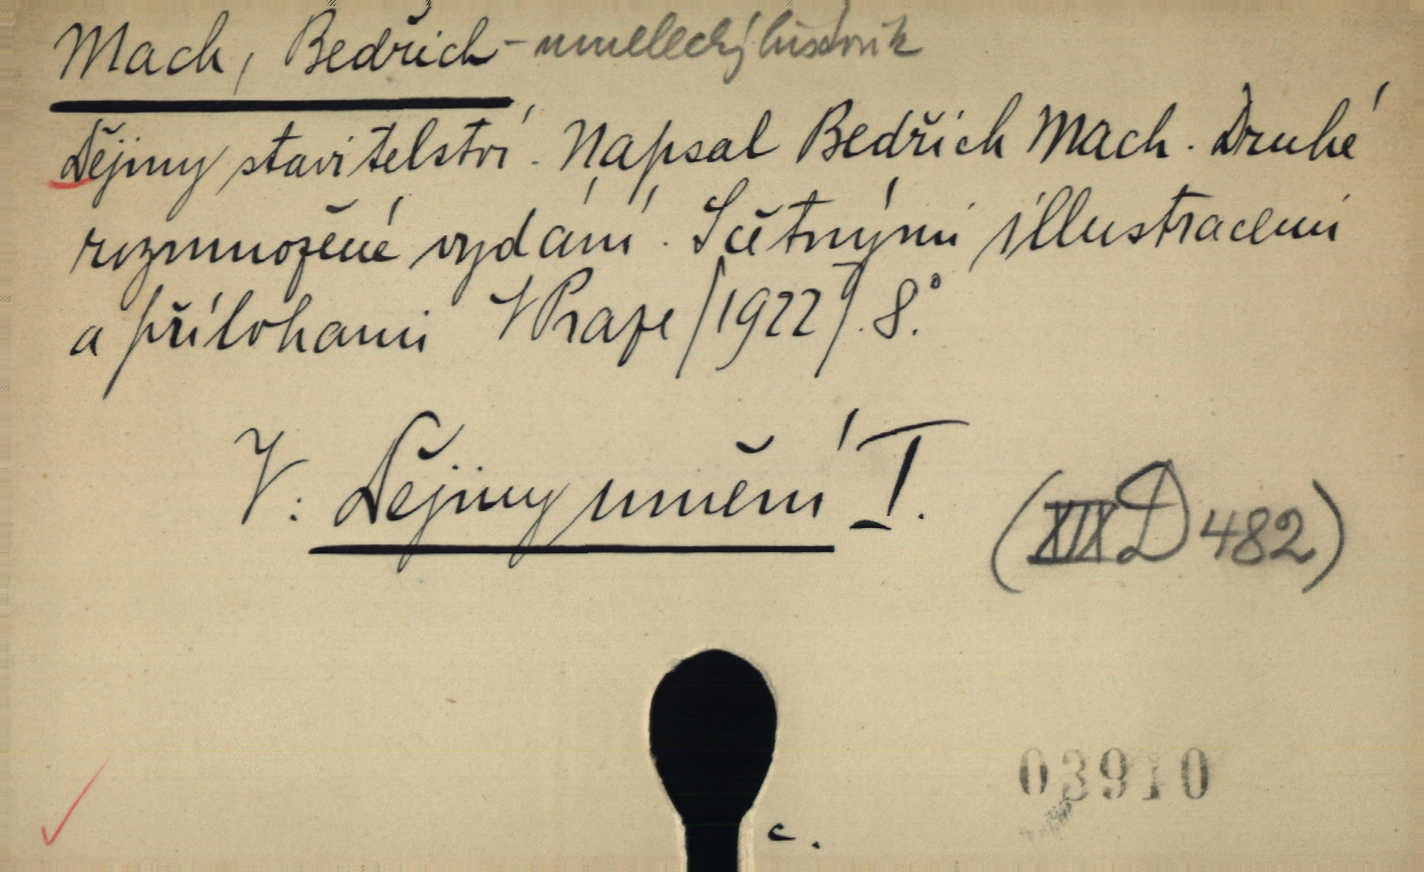 Mach, Bedřich - umělecký historik
Dějiny stavitelství. Napsal Bedřich Mach. Druhé
rozmnožené vydání. S četnými illustracemi
a přílohami V Praze /1922/. 8.°
V: Dějiny umění I.
(XIX D 482)
03910
c.